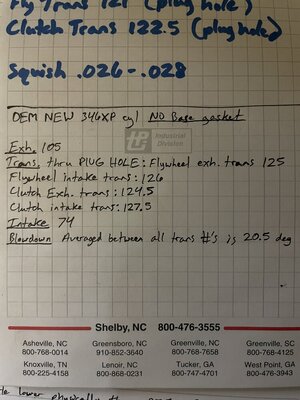 Fly Trans 121 (plug hole)
Clutch Trans 122.5 (plug hole)
Squish .026-.028
OEM NEW 346XP cyl NO Base gasket
Industrial
Division
Exh. 105
Trans. thru PLUG HOLE: Flywheel exh. trans 125
Flywheel intake trans: 126
Clutch Exh. trans: 124.5
Clutch intake trans: 127.5
Intake 74
Blowdown Averaged between all trans #'s is 20.5 deg
Shelby, NC 800-476-3555
Asheville, NC Greensboro, NC Greenville, NC Greenville, SC
800-768-0014 910-852-3640 800-768-7658 800-768-4125
Knoxville, TN Lenoir, NC Tucker, GA West Point, GA
800-225-4158 800-868-0231 800-747-4701 800-476-3943
lower